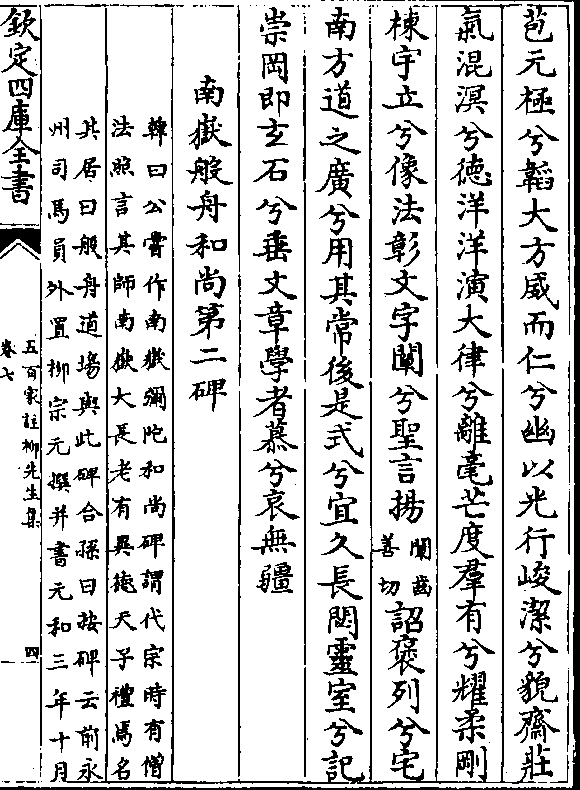 苞元極兮韜大方威而仁兮幽以光行峻潔兮貌齋莊
氣混溟兮德洋洋演大律兮離毫芒度羣有兮耀柔剛
棟宇立兮像法彰文字闡兮聖言揚闡齒善切詔褒列兮宅
南方道之廣兮用其常後是式兮宜久長閟靈室兮記
崇岡即玄石兮垂文章學者慕兮哀無疆
南嶽般舟和尚第二碑
韓曰公嘗作南嶽彌陀和尚碑謂代宗時有僧
法照言其師南嶽大長老有異德天子禮焉名
其居曰般舟道場與此碑合孫曰按碑云前永
州司馬員外置柳宗元撰并書元和三年十月
欽定四庫全書
五百家註柳先生集
卷七
四